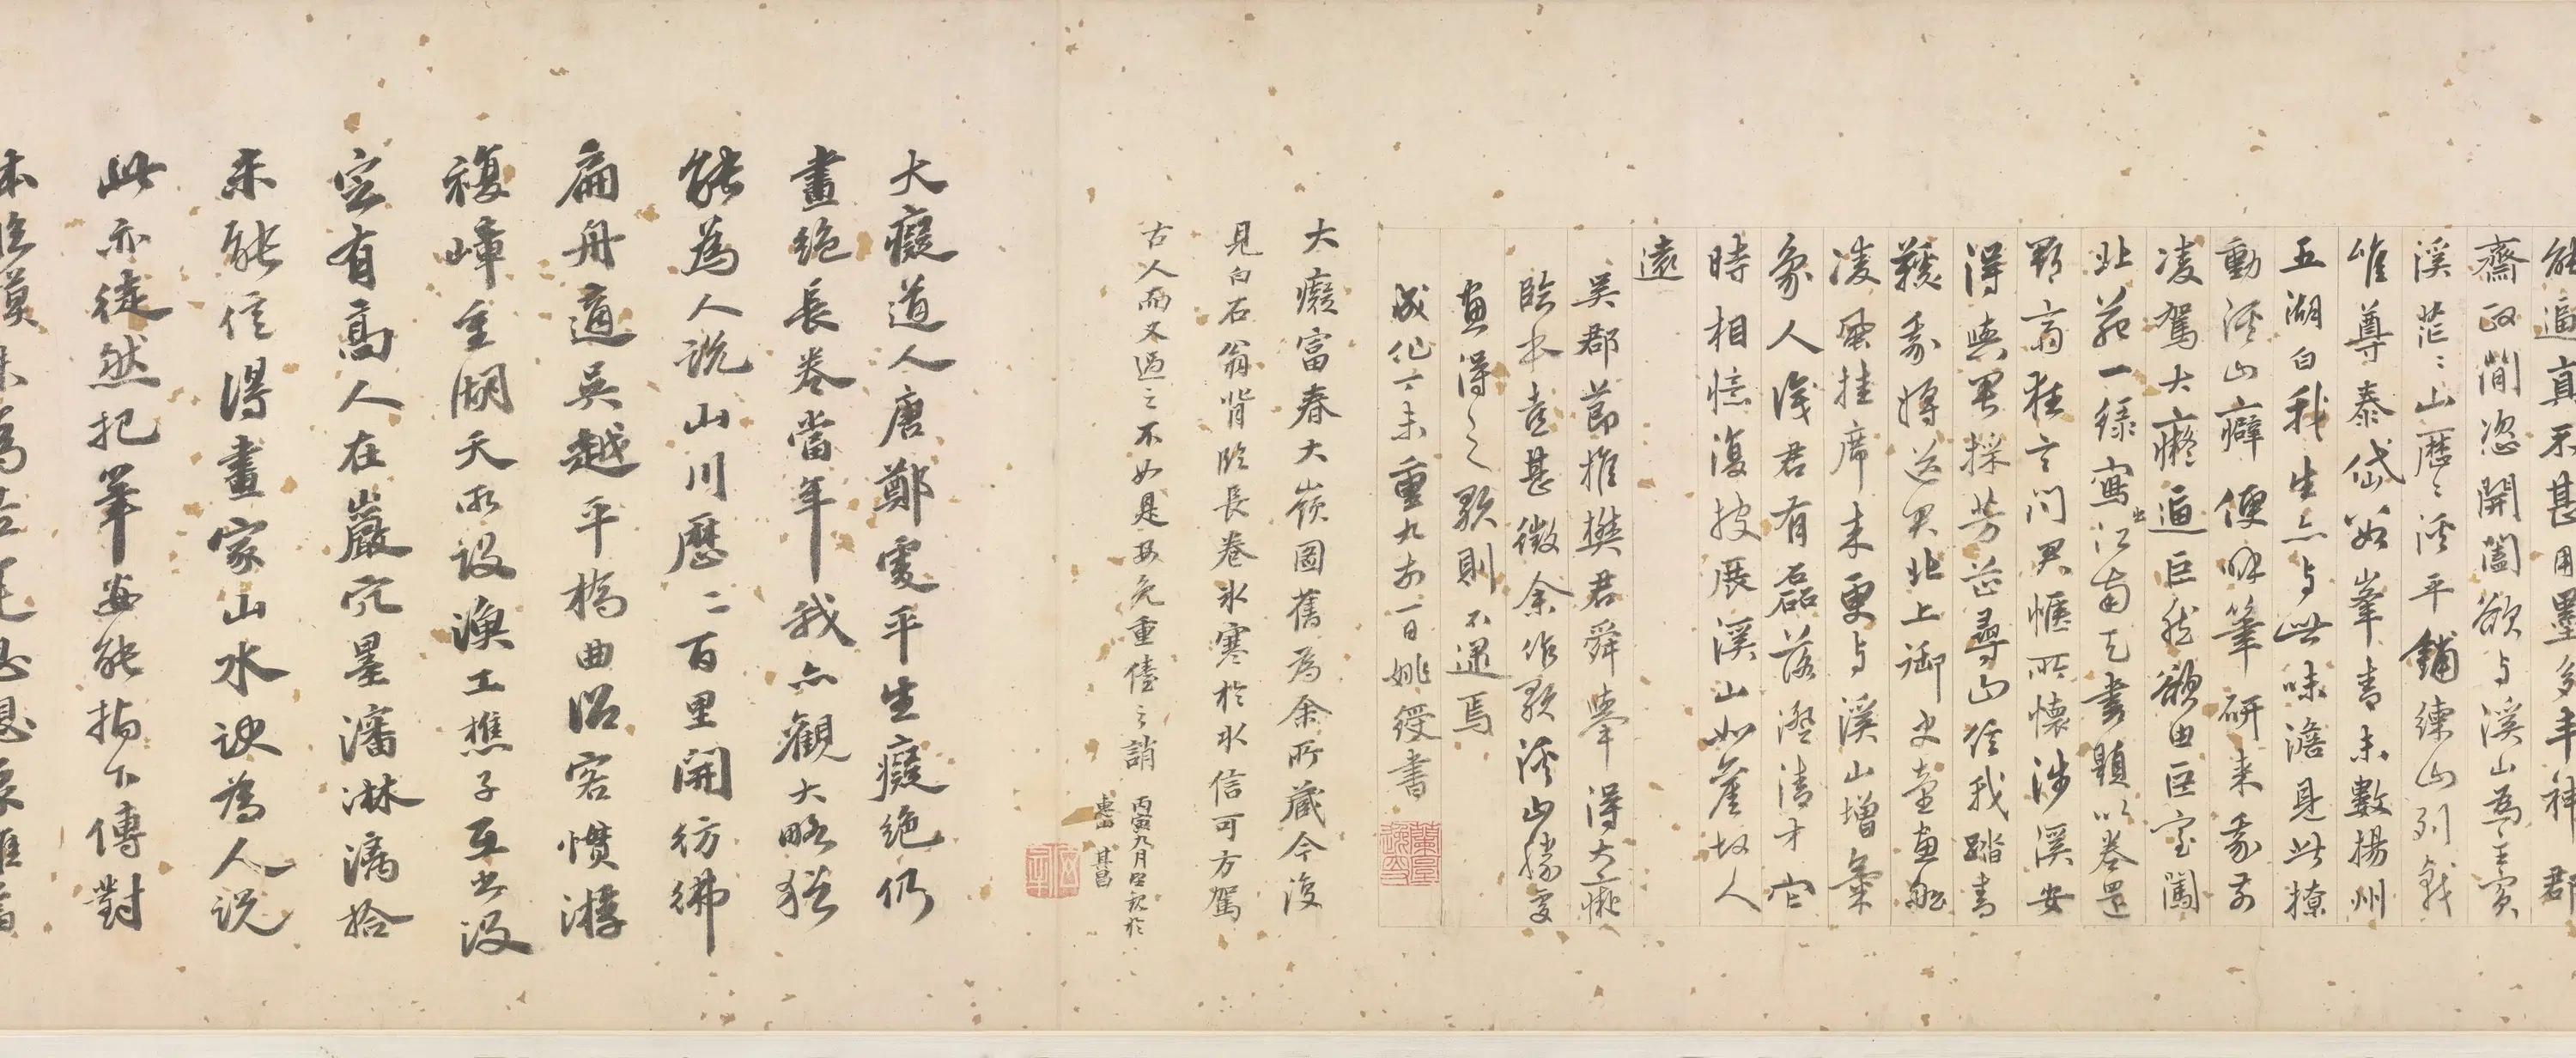 能逼真不甚用墨多丰神郡
齋政簡忽開闔欲与溪山為主賓
溪茫〻山歷〻溪平鋪練山列戟
唯尊泰岱如峯青未數揚州
五湖白我生亦与此味澹見此撩
動溪山癖便眠筆研来為君
凌駕大癡逼巨然欲由巨室闖
北苑一綠寫出江南天書題以卷還
郡齋狂言問君惬所懷涉溪安
得與君採芳芷尋山從我踏青
鞵為博送君北上御史臺畫船
凌風挂席来更与溪山增氣
象人淺君有磊落澄清才它
時相憶復披展溪山如舊故人
遠
吳郡節推樊君舜舉得大癡
臨本意甚徵余作歌溪山勝處
畫得之歌則不逮焉
成化丁未重九前一日姚綬書
大癡富春大嶺圖舊為余所藏今復
見白石翁背臨長卷冰寒於水信可方駕
古人而又過之不如是安免重儓之誚
丙寅九月四日觀於
惠山 其昌
大癡道人唐鄭虔平生癡絕仍
畫絕長卷當年我亦觀大略猶
能為人說山川歷〻百里開彷彿
扁舟適吳越平橋曲沼客慣游
複嶂重湖天所設漁工樵子互出沒
空有高人在巖穴墨瀋淋漓拾
未能信得畫家山水訣為人說
此亦徒然把筆安能指下傳對